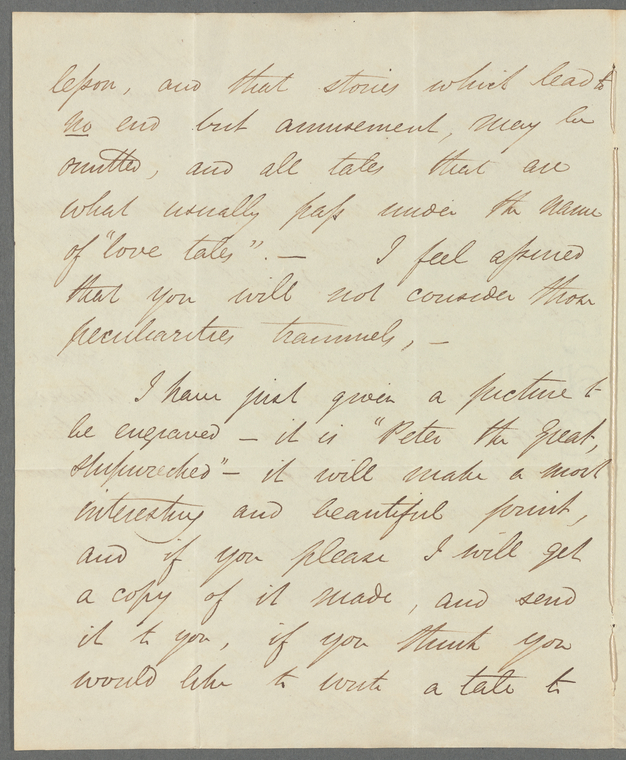 lesson, and that stories which lead to
no end but amusement, may be
omitted, and all tales that are
what usually pass under the name
of "love tales". — I feel assured
that you will not consider those
peculiarities trammels, —
I have just given a picture to
be engraved — it is "Peter the Great,
shipwrecked" — it will make a most
interesting and beautiful print,
and if you please I will get
a copy of it made, and send
it to you, if you think you
would like to write a tale to